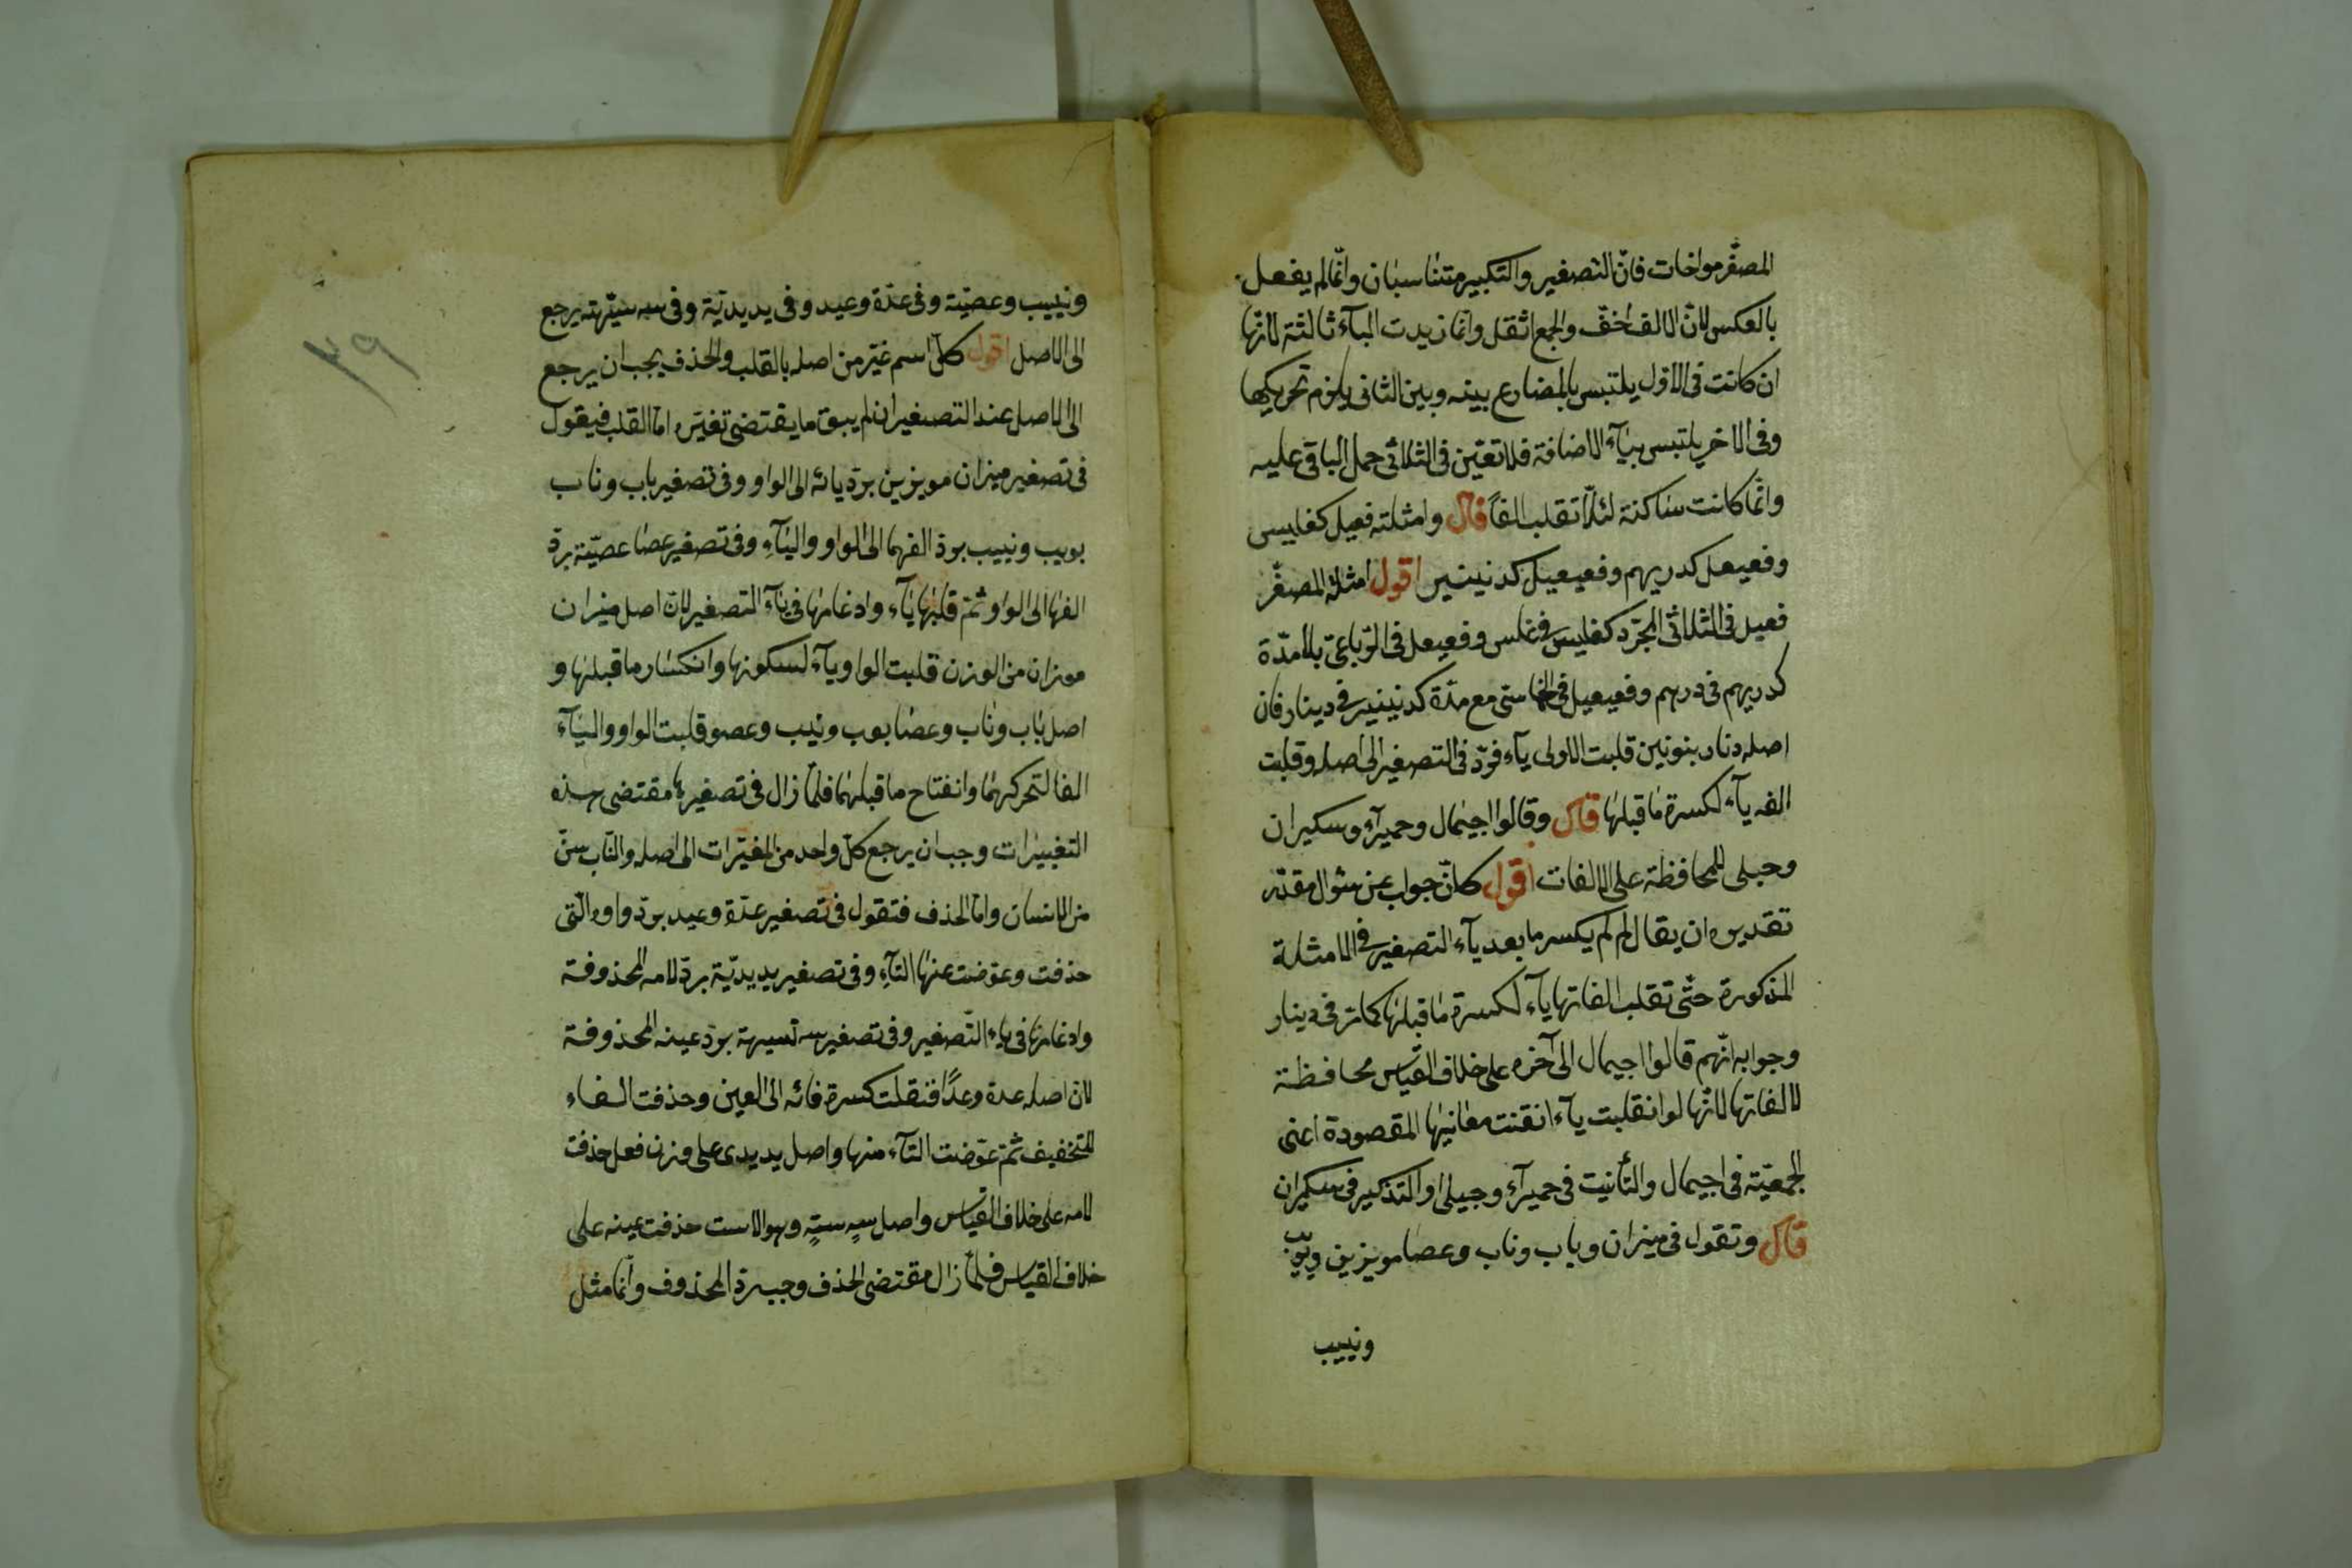 المصغّر مواخات فانّ التصغير والتكبير متناسبان وانّما لم يفعل
بالعكس لانّ الالف اخفّ والجمع اثقل وانّما زيدت اليآء ثالثة لانّها
ان كانت فى الاوّل يلتبس بالمضارع بينه وبين الثانى يلزم تحريكها
وفى الاخر يلتبس بيآء الاضافة فلا تعيّن فى الثلاثى حمل الباقى عليه
وانّما كانت ساكنة لئلّا تقلب الفاً قال وامثلته فعيل كفليس
وفعيعل كدريهم وفعيعيل كدنينير اقول امثلة المصغّر
فعيل فى الثلاثى المجرّد كفليس فى فلس وفعيعل فى الرّباعىّ بلا مدّة
كدريهم فى درهم وفعيعيل فى الخماسى مع مدّة كدنينير فى دينار فان
اصله دنار بنونين قلبت الاولى يآء فردّ فى التصغير الى اصله وقلبت
الفه يآء لكسرة ما قبلها قال وقالوا اجيمال وحميرآء وسكيران
وحبلى للمحافظة على الالفات اقول كانّ جواب عن سئوال مقدّر
تقديره ان يقال لم لم يكسر ما بعد يآء التصغير فى الامثلة
المذكورة حتّى تقلب الفاتها يآء لكسرة ما قبلها كما مر فى دينار
وجوابه انّهم قالوا اجيمال الى آخره على خلاف القياس محافظة
لالفاتها لانّها لو انقلبت يآء انقنت معانيها المقصودة اعنى
الجمعيّة فى اجيمال والتأنيت فى حميرآء وجيلى او التذكير فى سكيران
قال وتقول فى ميزان وباب وناب وعصا مويزين وبويب
ونييب
ونييب وعصيّة وفى عدّة وعيد وفى يد يديّة وفى سه ستيهة يرجع
الى الاصل اقول كلّ اسم غيّر من اصله بالقلب والحذف يجب ان يرجع
الى الاصل عند التصغير ان لم يبق ما يقتضى تغيّره امّا القلب فيقول
فى تصغير ميزان مويزين بردّ يائه الى الواو وفى تصغير باب وناب
بويب ونييب بردّ الفهما الى الواو واليآء وفى تصغير عصا عصيّة بردّ
الفها الى الواو ثمّ قلبها يآء وادغامها فى يآء التصغير لانّ اصل ميزان
موزان من الوزن قلبت الواو يآء لسكونها وانكسار ما قبلها و
اصل باب وناب وعصا بوب ونيب وعصو قلبت الواو واليآء
الفا لتحركهما وانفتاح ما قبلهما فلمّا زال فى تصغيرها مقتضى هذه
التغييرات وجب ان يرجع كلّ واحد من المغيّرات الى اصله والنّاب سنّ
من الانسان وامّا الحذف فتقول فى تصغير عدّة وعيد بردّ واوه الّتى
حذفت وعوّضت عنها التآء وفى تصغير يد يديّة بردّ لامه المحذوفة
وادغامها فى ياء التّصغير وفى تصغير سه تسيهة بردّ عينه المحذوفة
لان اصله عدة وعدًا فنقلت كسرة فائه الى العين وحذفت الفاء
للتخفيف ثمّ عوّضت التآء منها واصل يد يدى على وزن فعل حذفت
لامه على خلاف القياس واصل سهٍ ستهٍ وهو الاست حذفت عينه على
خلاف القياس فلمّا زال مقتضى الحذف وجب ردّ المحذوف وانّما مثل
٣٩